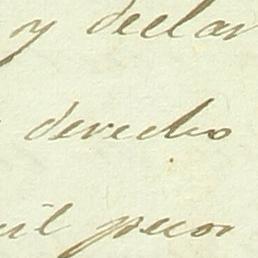 y declar
derecho
mil pesos